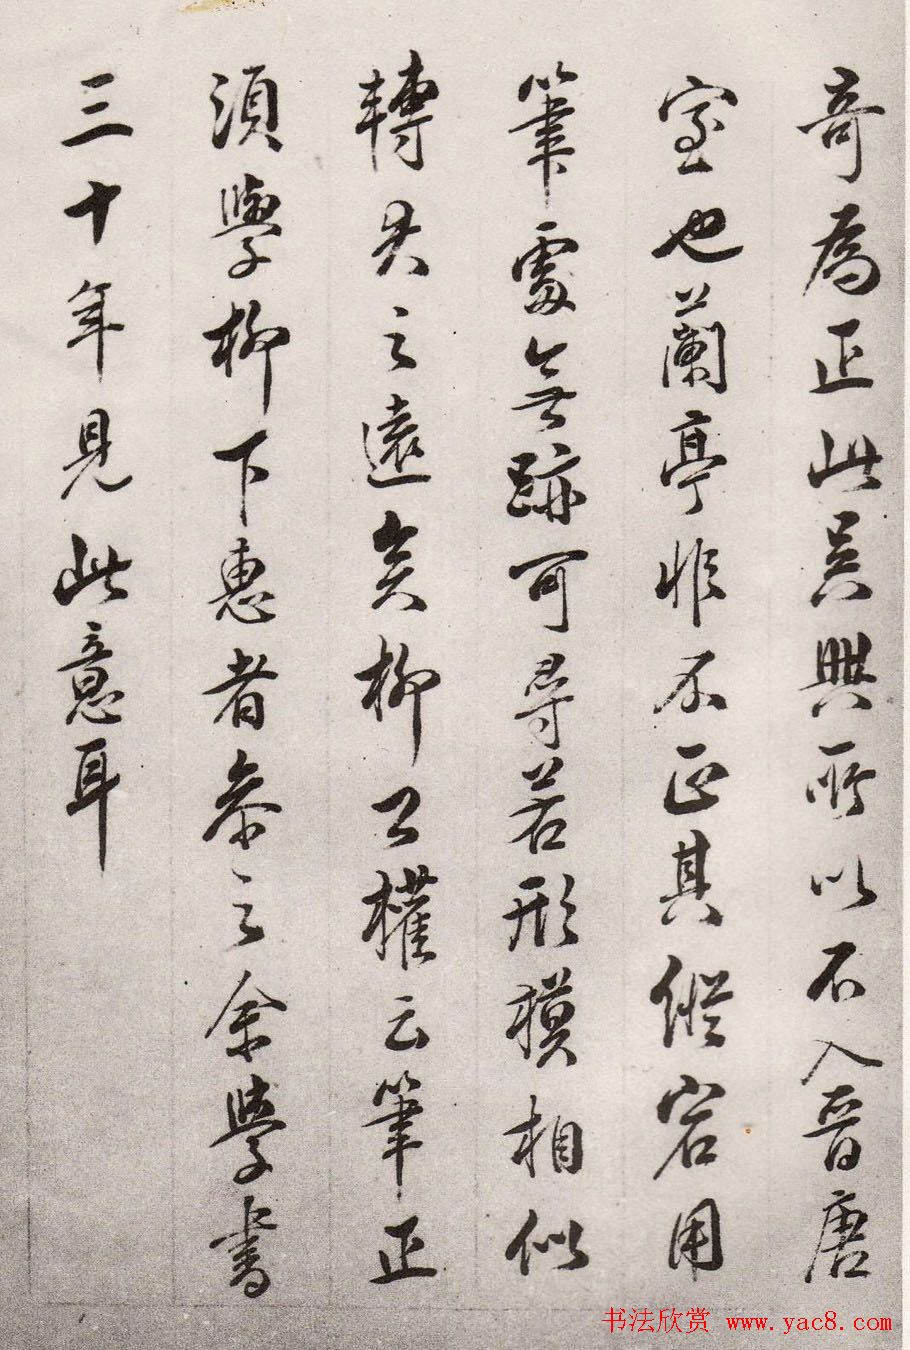 奇為正此吴興所以不入晉唐
室也蘭亭非不正其縱宕用
筆處無跡可尋若形模相似
轉去之遠矣柳公權云筆正
須學柳下惠者參之余學書
三十年見此意耳
书法欣赏 www.yac8.com